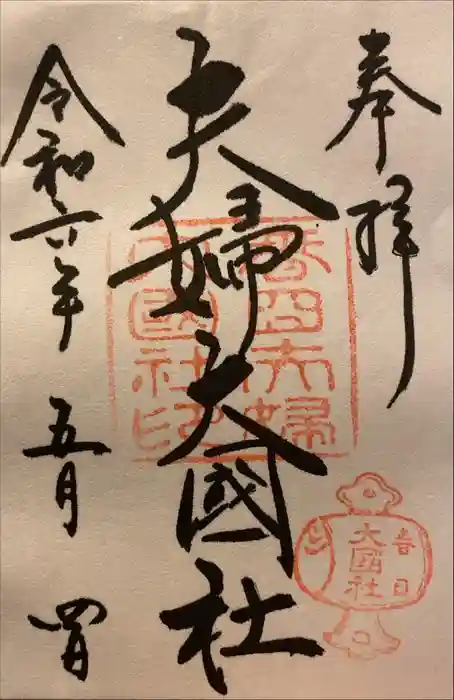 奉拝
夫婦大國社
春日夫婦
大國社印
春日
大國社
令和六年
五月
四日